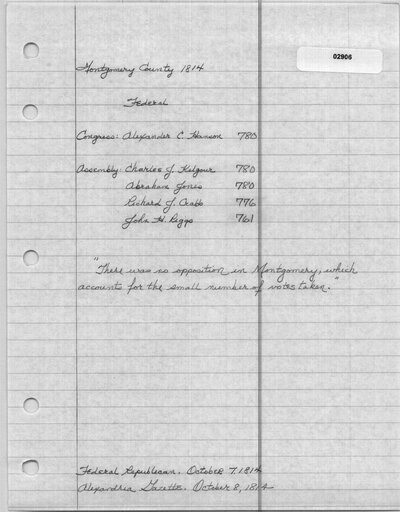 02906
Montgomery County 1814
Federal
Congress: Alexander C. Hanson 780
Assembly: Charles J. Kilgour 780
Abraham Jones 780
Richard J. Crabb 776
John H. Riggs 761
"There was no opposition in Montgomery, which
accounts for the small number of votes taken."
Federal Republican. October 7, 1814
Alexandria Gazette. October 8, 1814